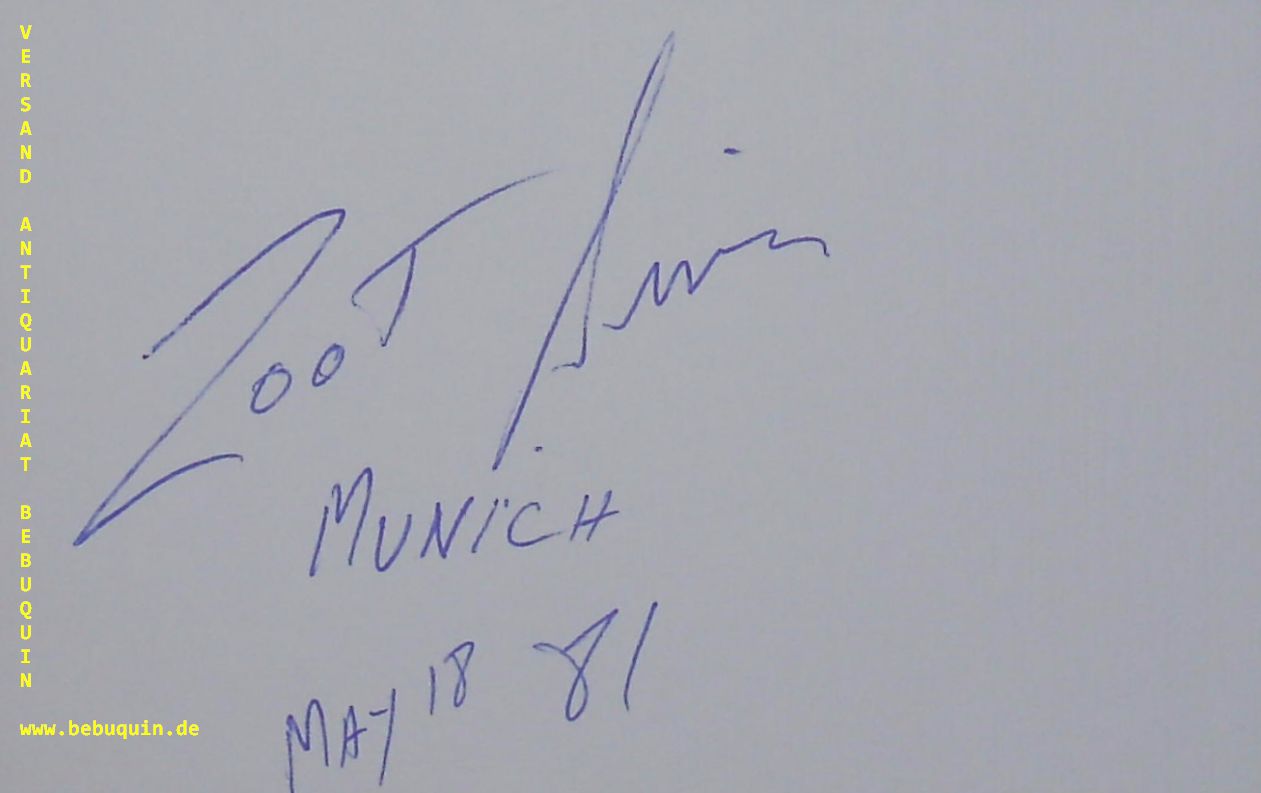 Zoot Sims
MUNICH
MAY 18 81
VERSAND ANTIQUARIAT BEBUQUIN
www.bebuquin.de